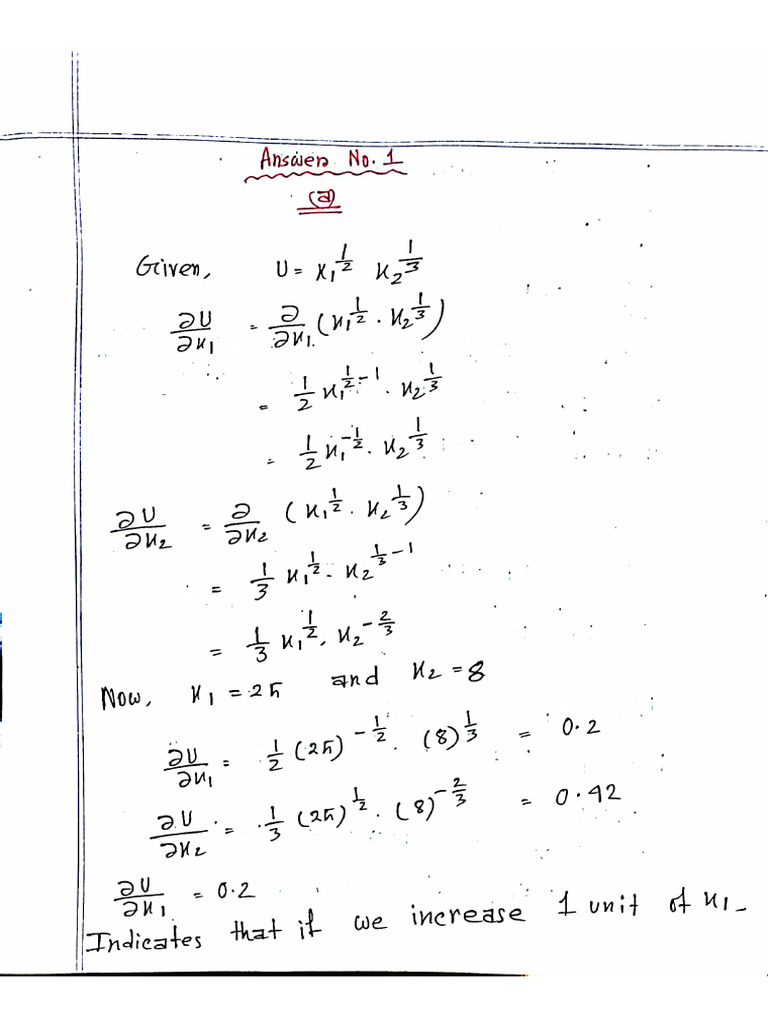 Answer No. 1
(a)
Given, U = x₁^{1/2} x₂^{1/3}
∂U/∂x₁ = ∂/∂x₁ (x₁^{1/2} · x₂^{1/3})
= 1/2 x₁^{1/2 - 1} · x₂^{1/3}
= 1/2 x₁^{-1/2} · x₂^{1/3}
∂U/∂x₂ = ∂/∂x₂ (x₁^{1/2} · x₂^{1/3})
= 1/3 x₁^{1/2} · x₂^{1/3 - 1}
= 1/3 x₁^{1/2} · x₂^{-2/3}
Now, x₁ = 25 and x₂ = 8
∂U/∂x₁ = 1/2 (25)^{-1/2} · (8)^{1/3} = 0.2
∂U/∂x₂ = 1/3 (25)^{1/2} · (8)^{-2/3} = 0.42
∂U/∂x₁ = 0.2
Indicates that if we increase 1 unit of x₁ -